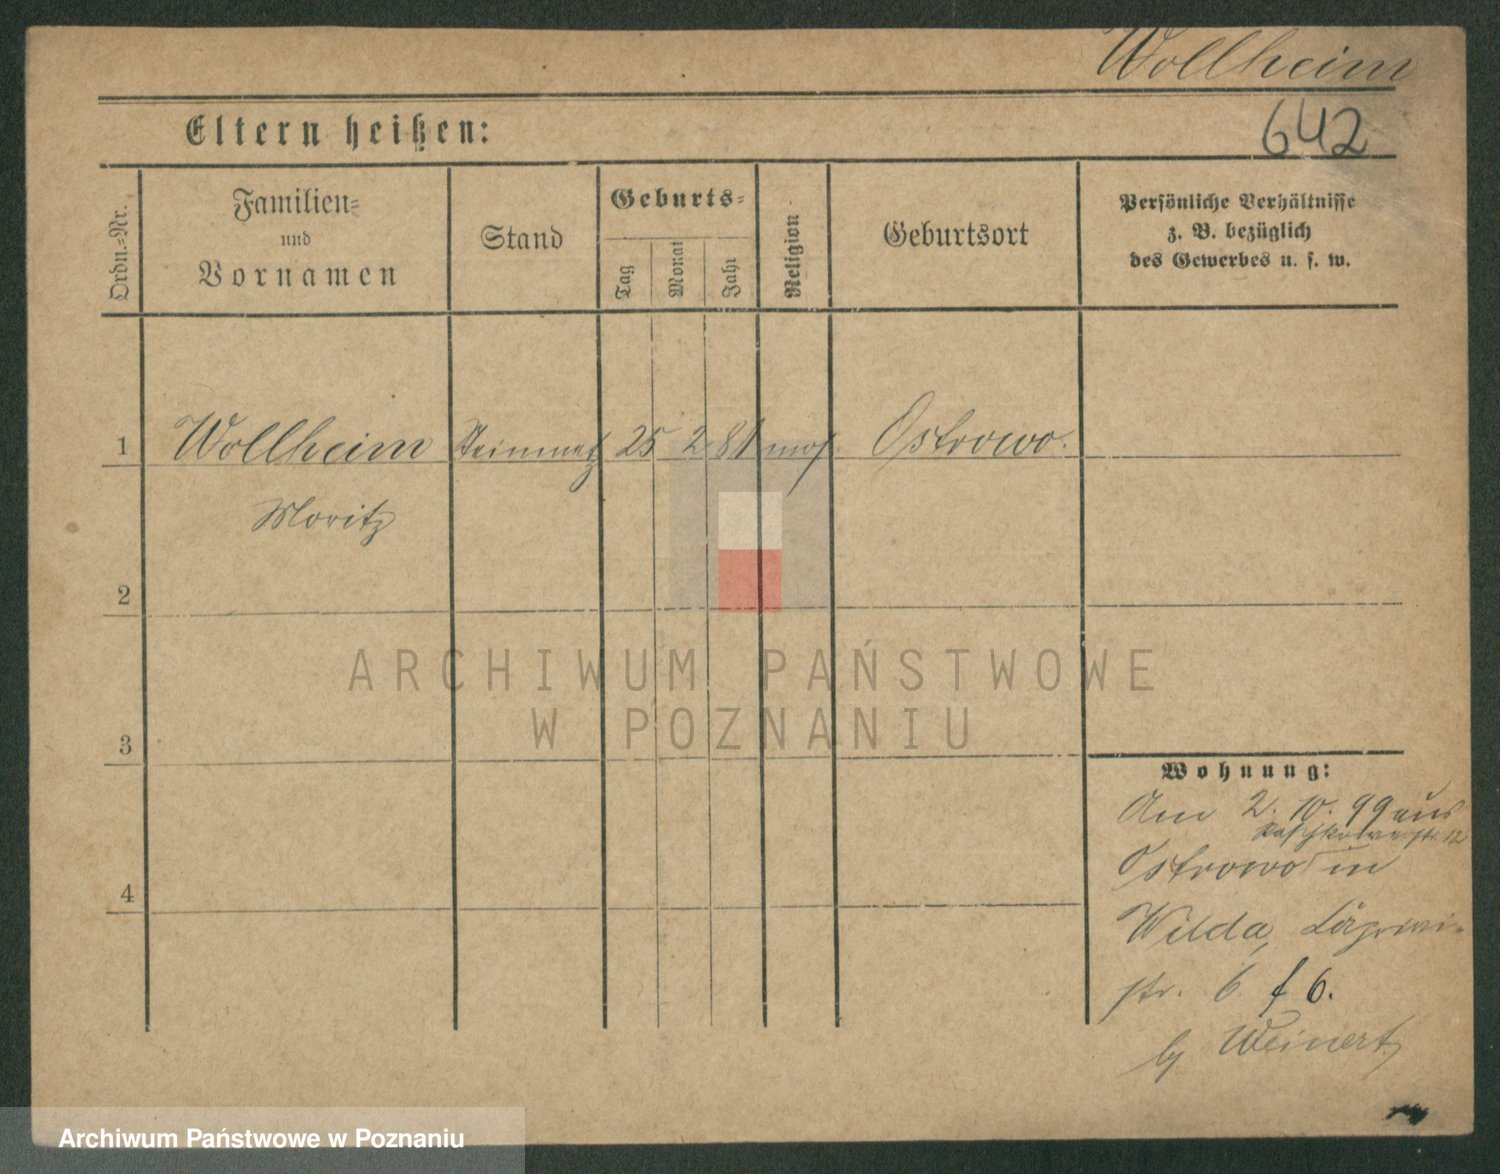 Wollheim
642
Eltern heißen:
Ordn.=Nr.
Familien=
und
Vornamen
Stand
Geburts=
Tag
Monat
Jahr
Religion
Geburtsort
Persönliche Verhältnisse
z. B. bezüglich
des Gewerbes u. s. w.
1 Wollheim Steinmetz 25 2 81 mos. Ostrowo.
Moritz
2
ARCHIWUM PAŃSTWOWE
W POZNANIU
3
Wohnung:
Am 2. 10. 99 aus
str. 12
Ostrowo in
4
Wilda,
str. 6. f 6.
by Weinert
Archiwum Państwowe w Poznaniu